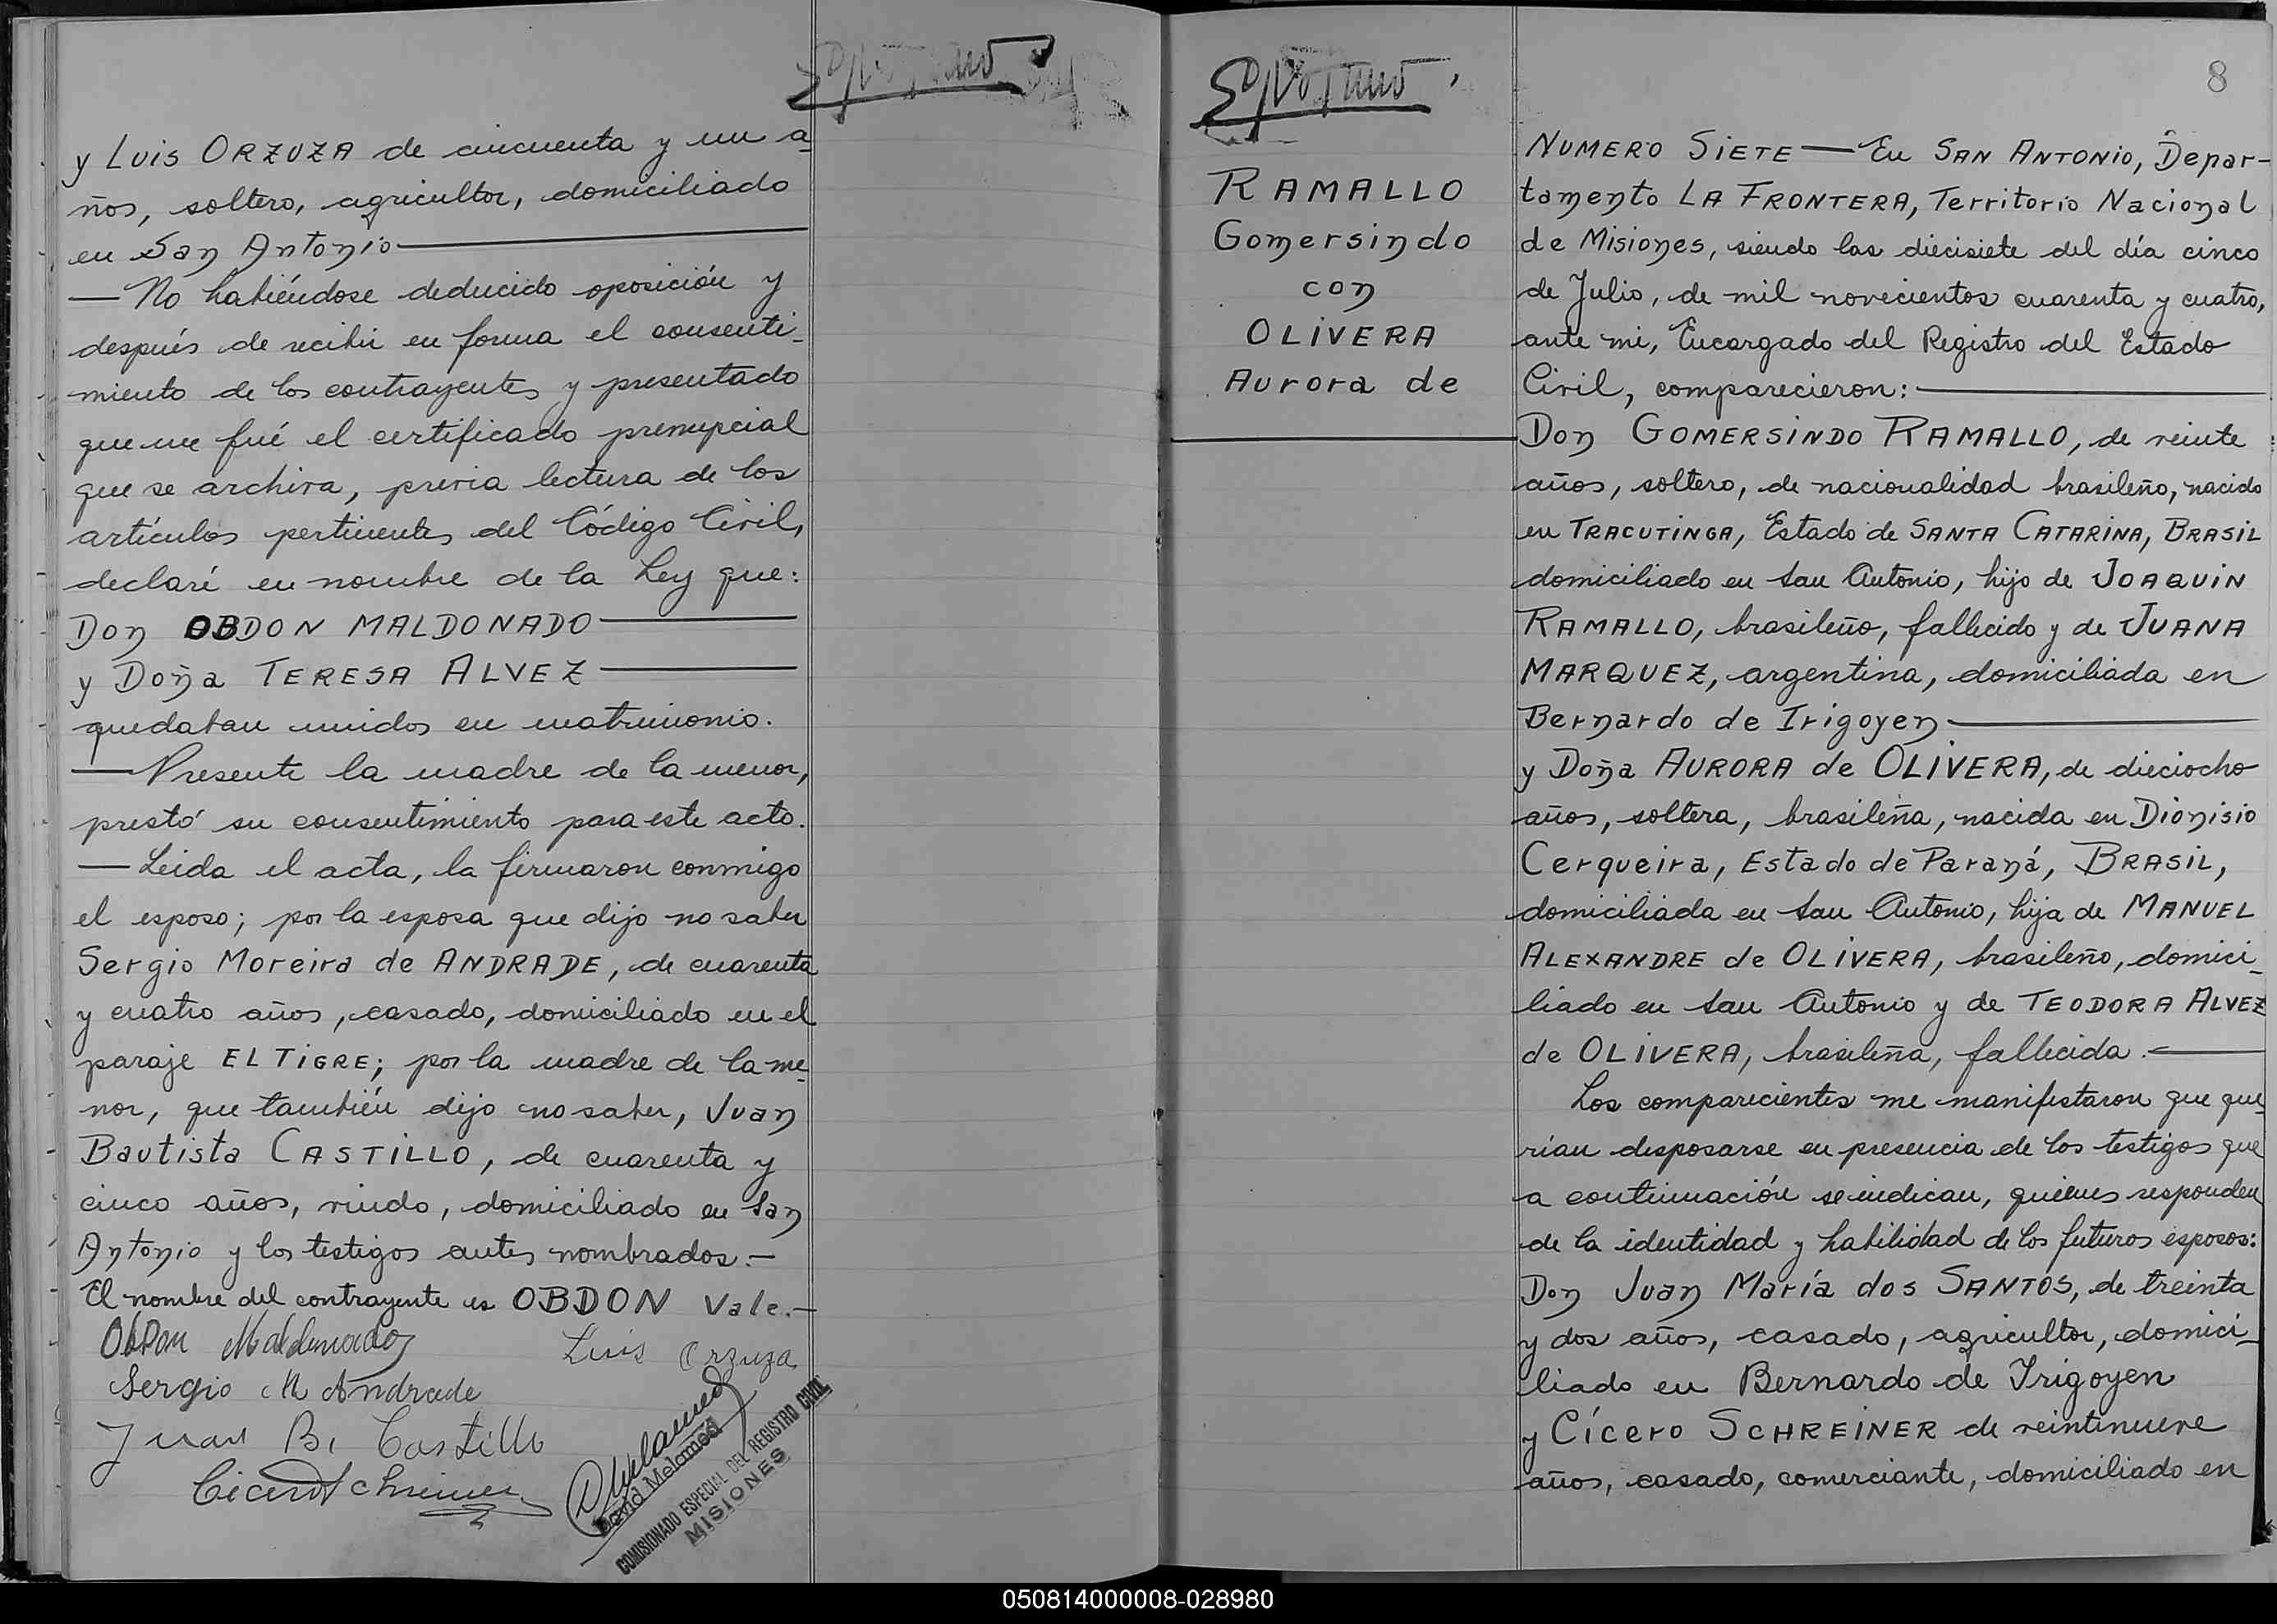 y Luis ORZUZA de cincuenta y un a-
ños, soltero, agricultor, domiciliado
en San Antonio
— No habiéndose deducido oposición y
después de recibir en forma el consenti-
miento de los contrayentes y presentado
que me fué el certificado prenupcial
que se archiva, previa lectura de los
artículos pertinentes del Código Civil,
declaré en nombre de la Ley que:
Don OBDON MALDONADO
y Doña TERESA ALVEZ
quedaban unidos en matrimonio.
— Presente la madre de la menor,
prestó su consentimiento para este acto.
— Leida el acta, la firmaron conmigo
el esposo; por la esposa que dijo no saber
Sergio Moreira de ANDRADE, de cuarenta
y cuatro años, casado, domiciliado en el
paraje EL TIGRE; por la madre de la me-
nor, que también dijo no saber, Juan
Bautista CASTILLO, de cuarenta y
cinco años, viudo, domiciliado en San
Antonio y los testigos antes nombrados.—
El nombre del contrayente es OBDON Vale.—
Obdon Maldonado
Luis Orzuza
Sergio M Andrade
Juan B. Castillo
Cicero Schreiner
David Melamed
COMISIONADO ESPECIAL DEL REGISTRO CIVIL
MISIONES
RAMALLO
Gomersindo
con
OLIVERA
Aurora de
8
NUMERO SIETE — En SAN ANTONIO, Depar-
tamento LA FRONTERA, Territorio Nacional
de Misiones, siendo las diecisiete del día cinco
de Julio, de mil novecientos cuarenta y cuatro,
ante mi, Encargado del Registro del Estado
Civil, comparecieron:
Don GOMERSINDO RAMALLO, de veinte
años, soltero, de nacionalidad brasileño, nacido
en TRACUTINGA, Estado de SANTA CATARINA, BRASIL
domiciliado en San Antonio, hijo de JOAQUIN
RAMALLO, brasileño, fallecido y de JUANA
MARQUEZ, argentina, domiciliada en
Bernardo de Irigoyen
y Doña AURORA de OLIVERA, de dieciocho
años, soltera, brasileña, nacida en Dionisio
Cerqueira, Estado de Paraná, BRASIL,
domiciliada en San Antonio, hija de MANUEL
ALEXANDRE de OLIVERA, brasileño, domici-
liado en San Antonio y de TEODORA ALVEZ
de OLIVERA, brasileña, fallecida.—
Los comparecientes me manifestaron que que-
rian desposarse en presencia de los testigos que
a continuación se indican, quienes responden
de la identidad y habilidad de los futuros esposos:
Don Juan María dos SANTOS, de treinta
y dos años, casado, agricultor, domici-
liado en Bernardo de Irigoyen
y Cícero SCHREINER de veintinueve
años, casado, comerciante, domiciliado en
050814000008-028980